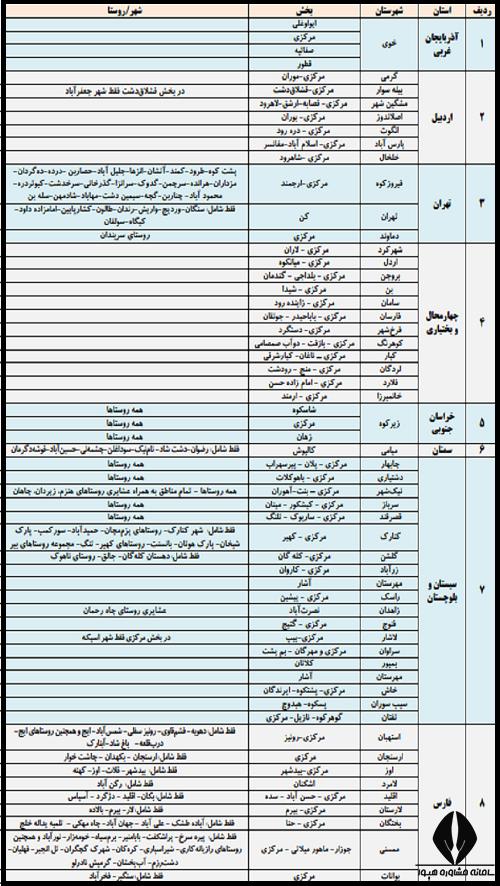 ردیف استان شهرستان بخش شهر/روستا
۱ آذربایجان غربی خوی ایواوغلی
مرکزی
صفائیه
قطور
۲ اردبیل گرمی مرکزی-موران
بیله سوار مرکزی-قشلاق‌دشت در بخش قشلاق‌دشت فقط شهر جعفرآباد
مشگین شهر مرکزی-قصابه-ارشق-لاهرود
اصلاندوز مرکزی-بوران
انگوت مرکزی - دره رود
پارس آباد مرکزی- اسلام آباد-مغانسر
خلخال مرکزی -شاهرود
۳ تهران فیروزکوه مرکزی-ارجمند پشت کوه-طرود-کمند-آتشان-انزها-جلیل آباد-حصاربن -درده-ده‌گردان-
مزداران-هرانده-سرچمن-گدوک-سرانزا-گذرخانی-سرخدشت-کبوتردره-
محمود آباد- چنارین-گچه-سیمین دشت-مهاباد-شادمهن-سله بن
تهران کن فقط شامل: سنگان-وردیج-واریش-رندان-طالون-کشارپایین-امامزاده داود-
کیگاه-سولقان
دماوند مرکزی روستای سربندان
۴ چهارمحال و بختیاری شهرکرد مرکزی - لاران
اردل مرکزی - میانکوه
بروجن مرکزی - بلداجی - گندمان
بن مرکزی - شیدا
سامان مرکزی - زاینده رود
فارسان مرکزی - باباحیدر - جونقان
فرخ‌شهر مرکزی- دستگرد
کوهرنگ مرکزی - بازفت - دوآب صمصامی
کیار مرکزی – ناغان- کیارشرقی
لردگان مرکزی - منج - رودشت
فلارد مرکزی - امام زاده حسن
خانمیرزا مرکزی - ارمند
۵ خراسان جنوبی زیرکوه شاسکوه همه روستاها
مرکزی همه روستاها
زهان همه روستاها
۶ سمنان میامی کالپوش فقط شامل: رضوان-دشت شاد- نام‌نیک-سوداغلن-چشمه‌نی-حسین‌آباد-قوشه‌دگرمان
۷ سیستان و بلوچستان چابهار مرکزی - پلان - پیرسهراب همه روستاها
دشتیاری مرکزی - باهوکلات همه روستاها
نیک‌شهر مرکزی – بنت-آهوران همه روستاها - تمام مناطق به همراه عشایری روستاهای هنزم، زیردان، چاهان
سرباز مرکزی - کیشکور - مینان همه روستاها
قصرقند مرکزی - ساربوک - تلنگ همه روستاها
کنارک مرکزی - کهیر فقط شامل: شهر کنارک- روستاهای پزم‌مچان- حمیدآباد- سورکمب- پارک
شیخان- پارک هوتان- بانسنت- روستاهای کهیر- تنگ- مجموعه روستاهای بیر
گلشن مرکزی - کله گان فقط شامل: دهستان کله‌گان- جالق- روستای ناهوک
زرآباد مرکزی - کاروان
مهرستان آشار
راسک مرکزی - پیشین
زاهدان نصرت‌آباد عشایری روستای چاه رحمان
فنوج مرکزی - کتیج
لاشار مرکزی-پیپ در بخش مرکزی فقط شهر اسپکه
سراوان مرکزی و مهرگان - بم پشت
بمپور کلاتان
مهرستان آشار
خاش مرکزی- پشتکوه- ایرندگان
سیب سوران پسکوه- هیدوچ
تفتان گوهرکوه- نازیل- مرکزی
۸ فارس استهبان مرکزی-رونیز فقط شامل: دهویه- قشم‌قاوی- رونیز سفلی- شمس‌آباد- ایج و همچنین روستاهای ایج-
درب‌قلعه- باغ شاد-آبنارک
ارسنجان مرکزی فقط شامل: ارسنجان - بکهدان - چاشت خوار
اوز مرکزی-بیدشهر فقط شامل: بیدشهر- قلات- اوز- کهنه
لامرد اشکنان فقط شامل: رکن آباد
اقلید مرکزی - حسن آباد - سده فقط شامل: بکان- اقلید - دژگرد - آسپاس
لارستان مرکزی- بیرم فقط شامل: لار- بیرم- بالاده
بختگان مرکزی - حنا فقط شامل: آباده طشک - علی آباد - جهان آباد- چاه مهکی - تلمبه یداله خلج
ممسنی جوزار- ماهور میلاتی - مرکزی فقط شامل: پیره سرخ- پراشکفت- بابامنیر- برم‌سیاه- خومه‌زار- نورآباد و همچنین
روستاهای رازیانه‌کاری- شیراسپاری- کره‌کان- شهرک گچگران- تل انجیر- قهلیان-
دشت‌رزم- آب‌پخشان- گرمیش نادرلو
بوانات مرکزی فقط شامل: سنگبر- فخرآباد
سامانه مشاوره هیوا